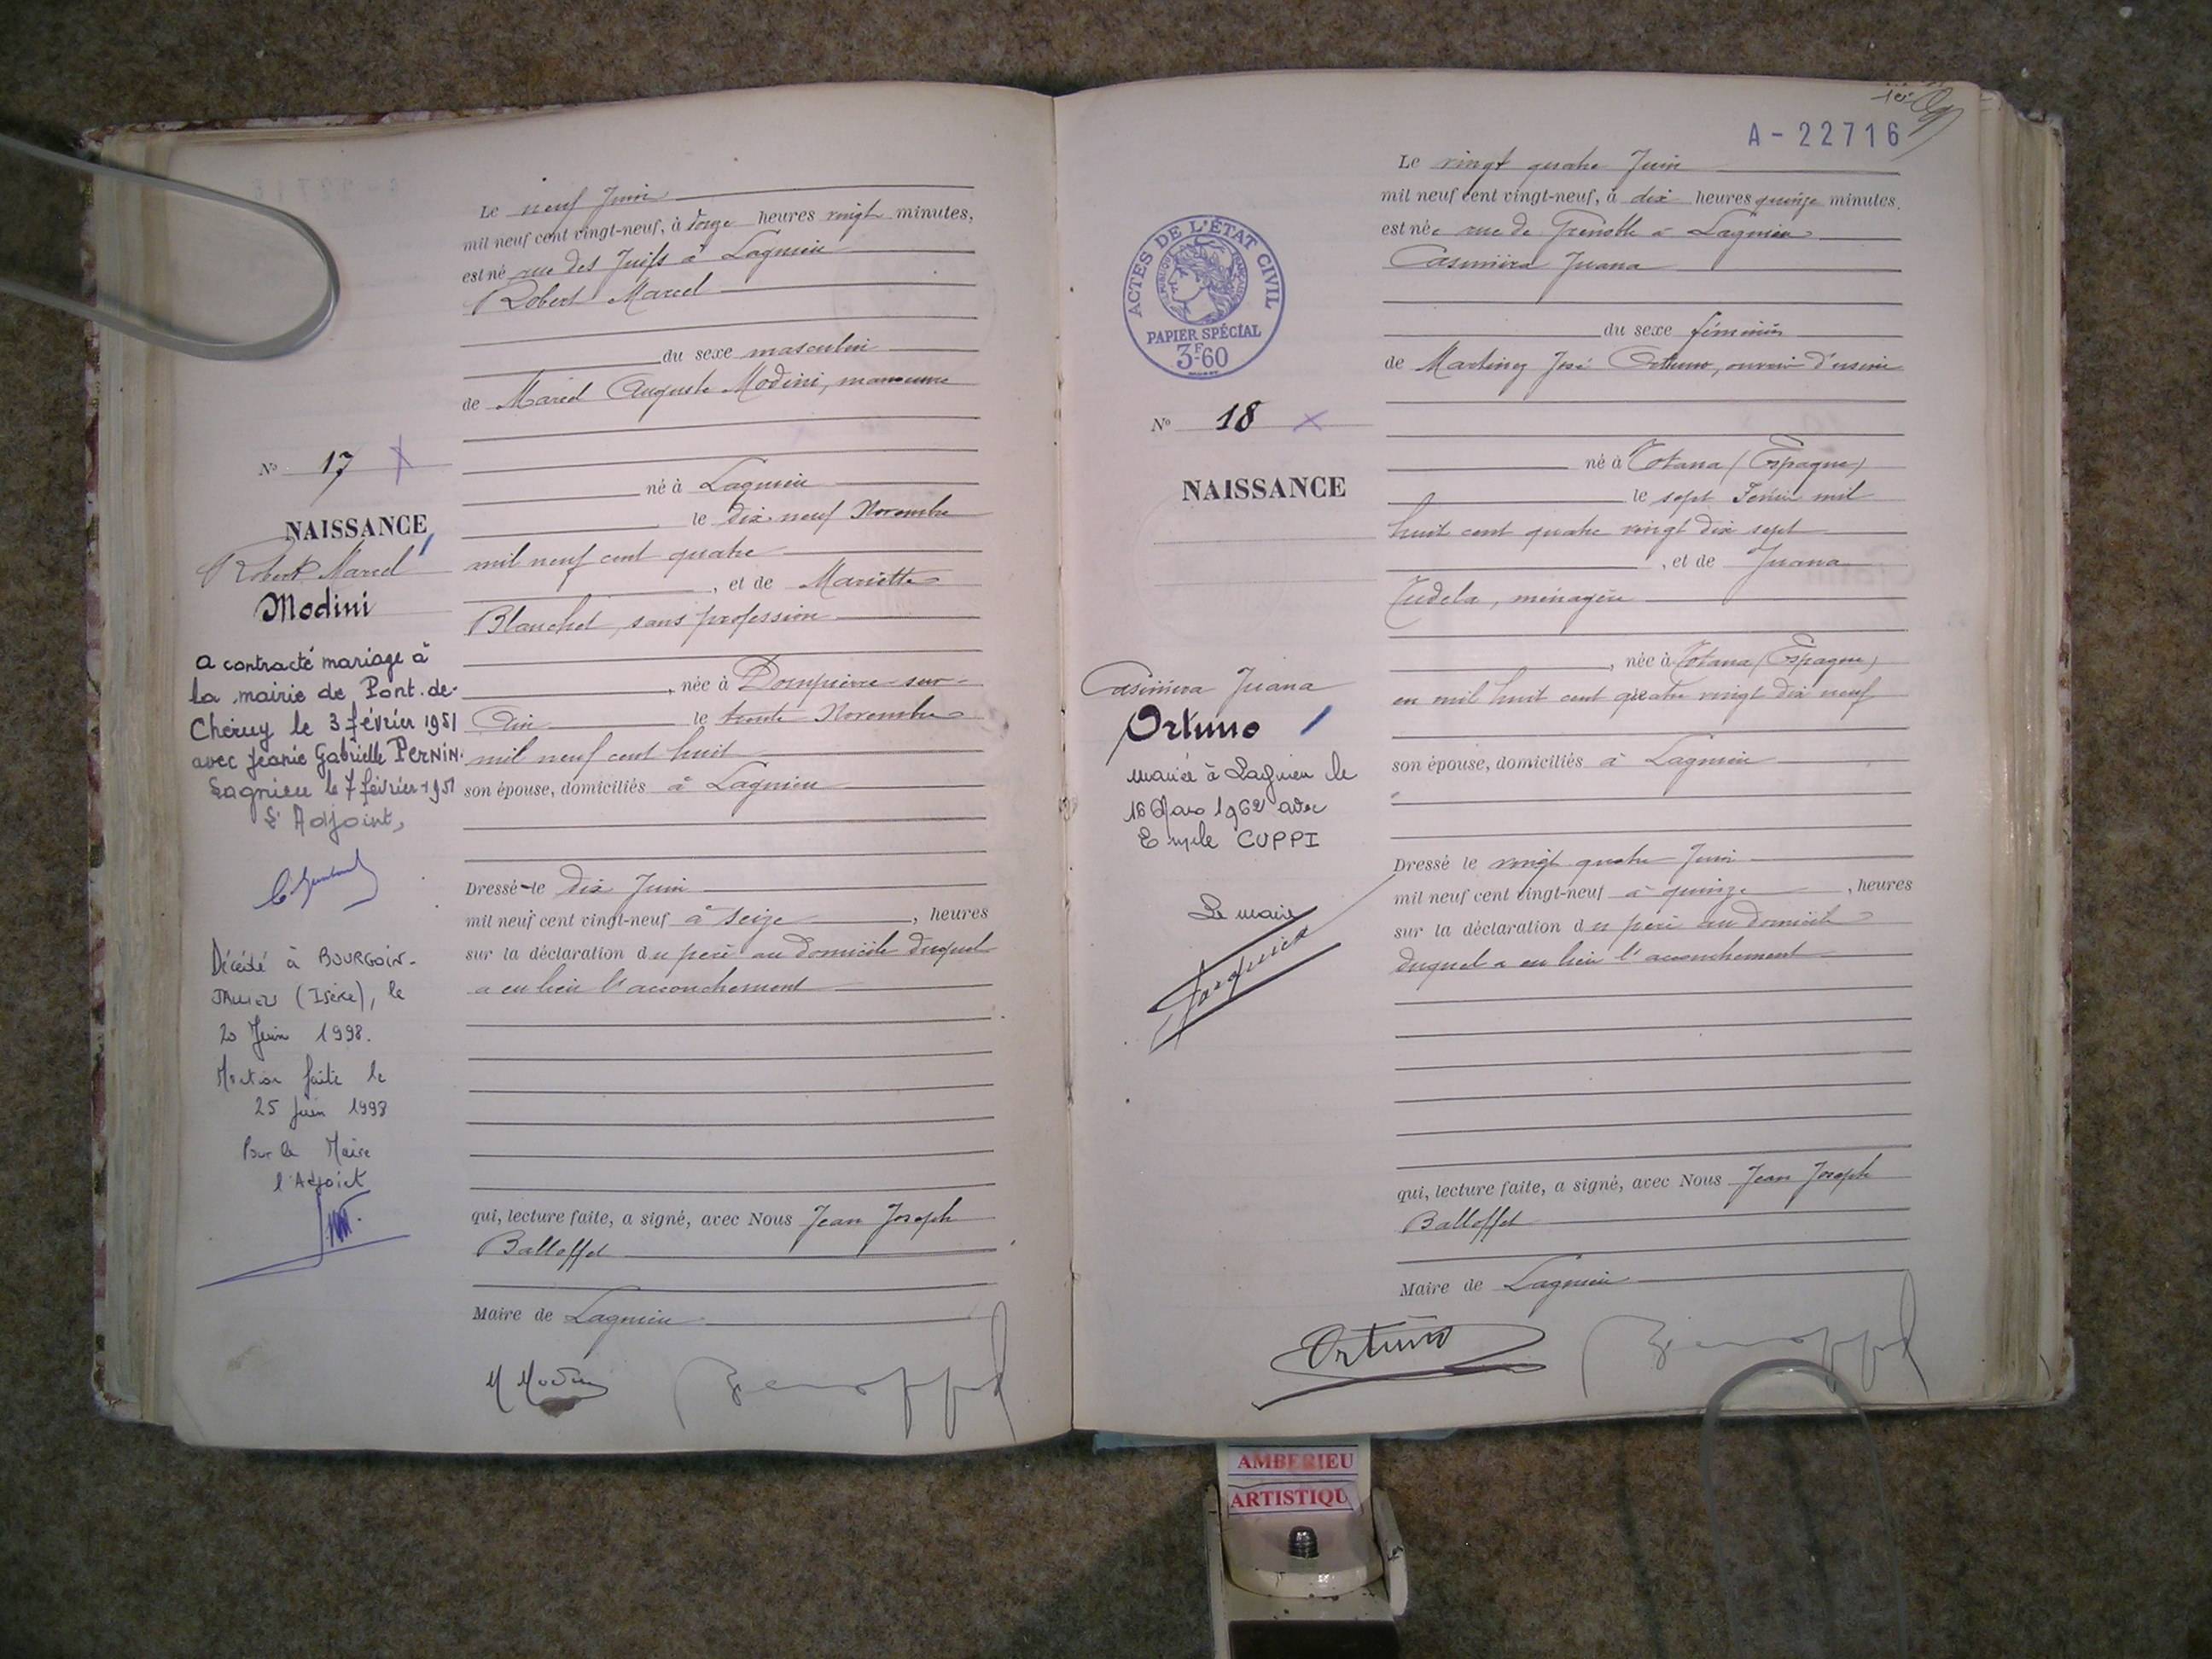 N° 17
NAISSANCE
Robert Marcel
Modini
a contracté mariage à
la mairie de Pont-de-
Chéruy le 3 février 1951
avec Jeanie Gabrielle PERNIN.
Lagnieu le 7 février 1951
L'Adjoint,
Décédé à BOURGOIN-
JALLIEU (Isère), le
20 Juin 1998.
Mention faite le
25 Juin 1998
Pour le Maire
l'Adjoint
Le neuf Juin
mil neuf cent vingt-neuf, à onze heures vingt minutes,
est né rue des Juifs à Lagnieu
Robert Marcel
du sexe masculin
de Marcel Auguste Modini, manœuvre
né à Lagnieu
le dix-neuf Novembre
mil neuf cent quatre
, et de Mariette
Blanchet, sans profession
, née à Dompierre-sur-
Ain le trente Novembre
mil neuf cent huit
son épouse, domiciliés à Lagnieu
Dressé le dix Juin
mil neuf cent vingt-neuf à seize , heures
sur la déclaration du père au domicile duquel
a eu lieu l'accouchement
qui, lecture faite, a signé, avec Nous Jean Joseph
Balloffet
Maire de Lagnieu
M Modini
A-22716
ACTES DE L'ÉTAT CIVIL
RÉPUBLIQUE FRANÇAISE
PAPIER SPÉCIAL
3F60
N° 18
NAISSANCE
Casimira Juana
Ortuno
mariée à Lagnieu le
16 Mars 1962 avec
CUPPI
Le maire
Le vingt quatre Juin
mil neuf cent vingt-neuf, à dix heures quinze minutes,
est née rue de Grenoble à Lagnieu
Casimira Juana
du sexe féminin
de Martinez José Ortuno, ouvrier d'usine
né à Totana (Espagne)
le sept Février mil
huit cent quatre vingt dix sept
, et de Juana
Tudela, ménagère
, née à Totana (Espagne)
en mil huit cent quatre vingt dix neuf
son épouse, domiciliés à Lagnieu
Dressé le vingt quatre Juin
mil neuf cent vingt-neuf à quinze , heures
sur la déclaration du père au domicile
duquel a eu lieu l'accouchement
qui, lecture faite, a signé, avec Nous Jean Joseph
Balloffet
Maire de Lagnieu
Ortuno
AMBERIEU
ARTISTIQU